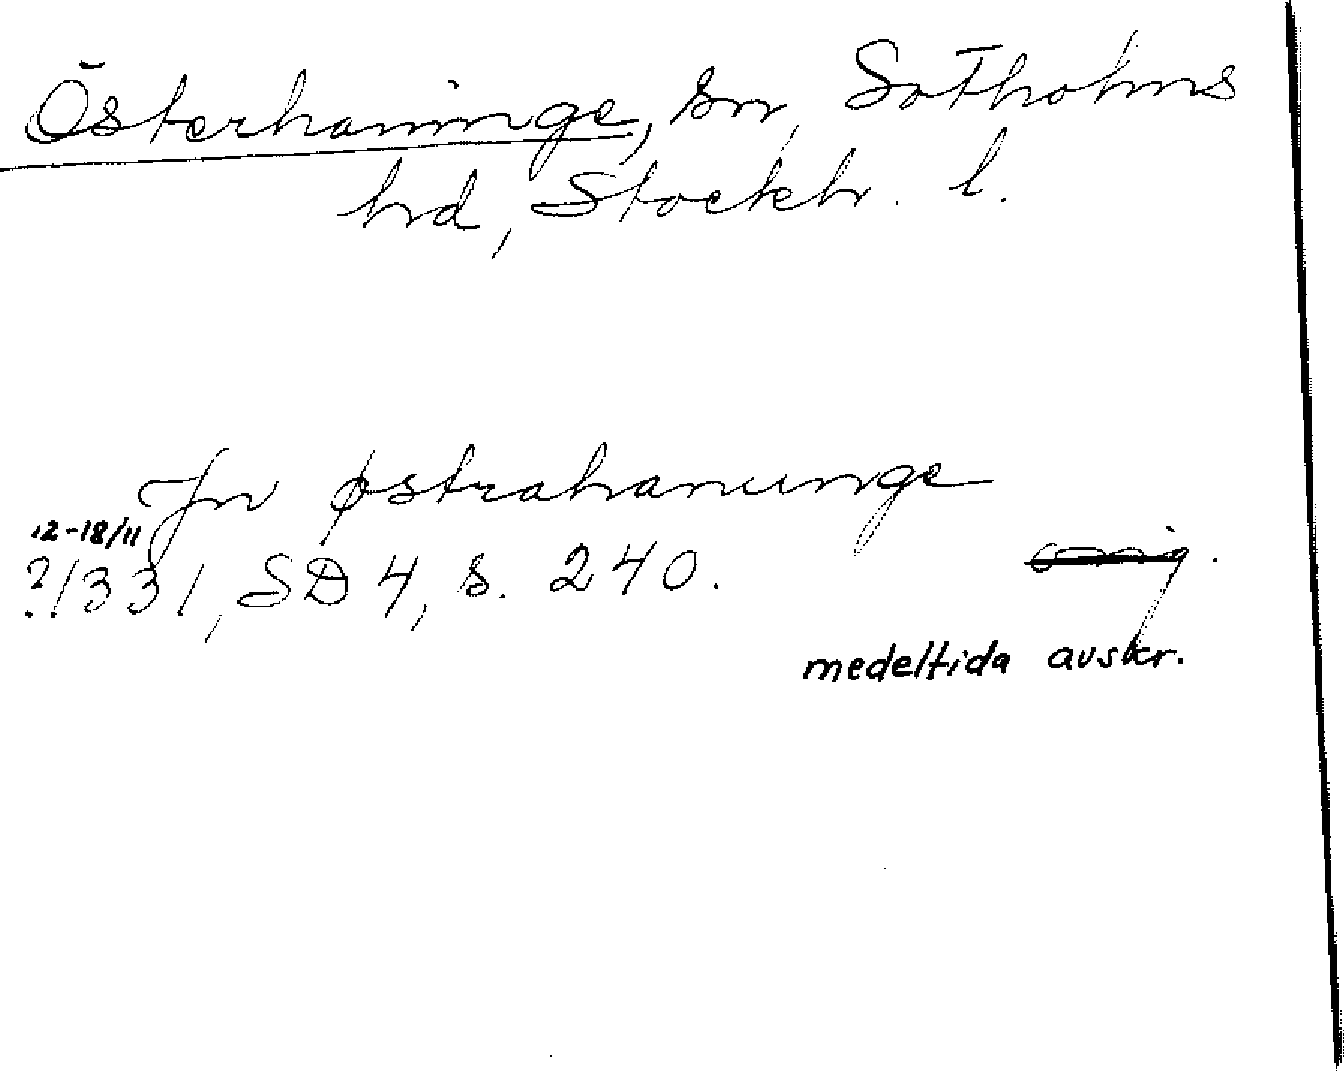 Österhaninge, sn, Sotholms
hd, Stockh. l.
Jn østrahanunge
12-18/11
?1331, SD 4, s. 240.
orig.
medeltida avskr.